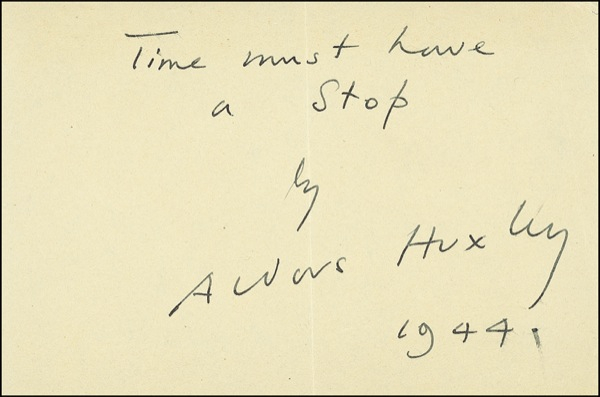 Time must have
a Stop
by
Aldous Huxley
1944.